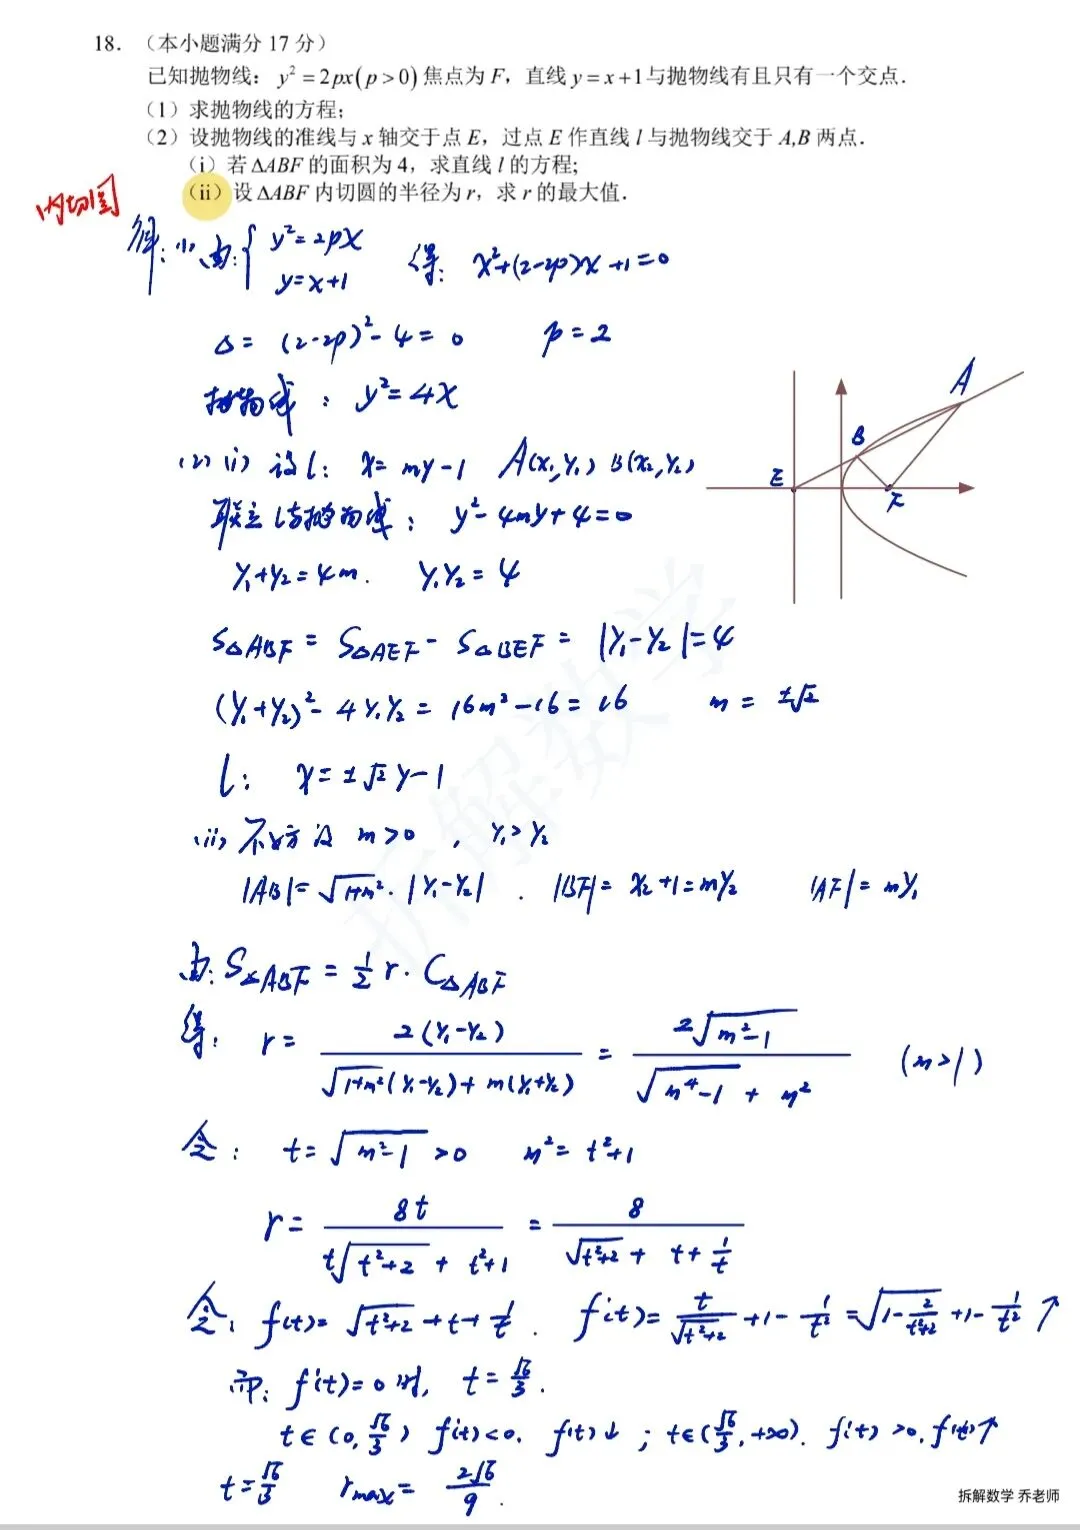 18. （本小题满分 17 分）
已知抛物线：y² = 2px(p > 0) 焦点为 F，直线 y = x + 1 与抛物线有且只有一个交点．
（1）求抛物线的方程；
（2）设抛物线的准线与 x 轴交于点 E，过点 E 作直线 l 与抛物线交于 A,B 两点．
（i）若 ΔABF 的面积为 4，求直线 l 的方程；
（ii）设 ΔABF 内切圆的半径为 r，求 r 的最大值．
内切圆
解：(1) 由：{ y²=2px  y=x+1  得：x²+(2-2p)x+1=0
Δ= (2-2p)²-4=0  p=2
抛物线：y²=4x
(2) (i) 设 l： x=my-1  A(x₁,y₁) B(x₂,y₂)
联立 l与抛物线： y²-4my+4=0
y₁+y₂=4m.  y₁y₂=4
S△ABF = S△AEF - S△BEF = |y₁-y₂|=4
(y₁+y₂)²-4y₁y₂=16m²-16=16  m=±√2
l： x=±√2y-1
(ii) 不妨设 m>0 , y₁>y₂
|AB|=√(1+m²)·|y₁-y₂| . |BF|=x₂+1=my₂  |AF|=my₁
由：S△ABF = 1/2 r·C△ABF
得： r= 2(y₁-y₂) / (√(1+m²)(y₁-y₂)+m(y₁+y₂)) = 2√(m²-1) / (√(m⁴-1)+m²)  (m>1)
令： t=√(m²-1)>0  m²=t²+1
r= 8t / (t√(t²+2)+t²+1) = 8 / (√(t²+2)+t+1/t)
令：f(t)=√(t²+2)+t+1/t . f'(t)=t/√(t²+2)+1-1/t²=√(1-2/(t²+2))+1-1/t² ↑
而：f'(t)=0时, t=√6/3.
t∈(0,√6/3) f'(t)<0, f(t)↓ ; t∈(√6/3,+∞). f'(t)>0, f(t)↑
t=√6/3  r_max=2√6/9.
A
B
E
F
拆解数学
拆解数学 乔老师